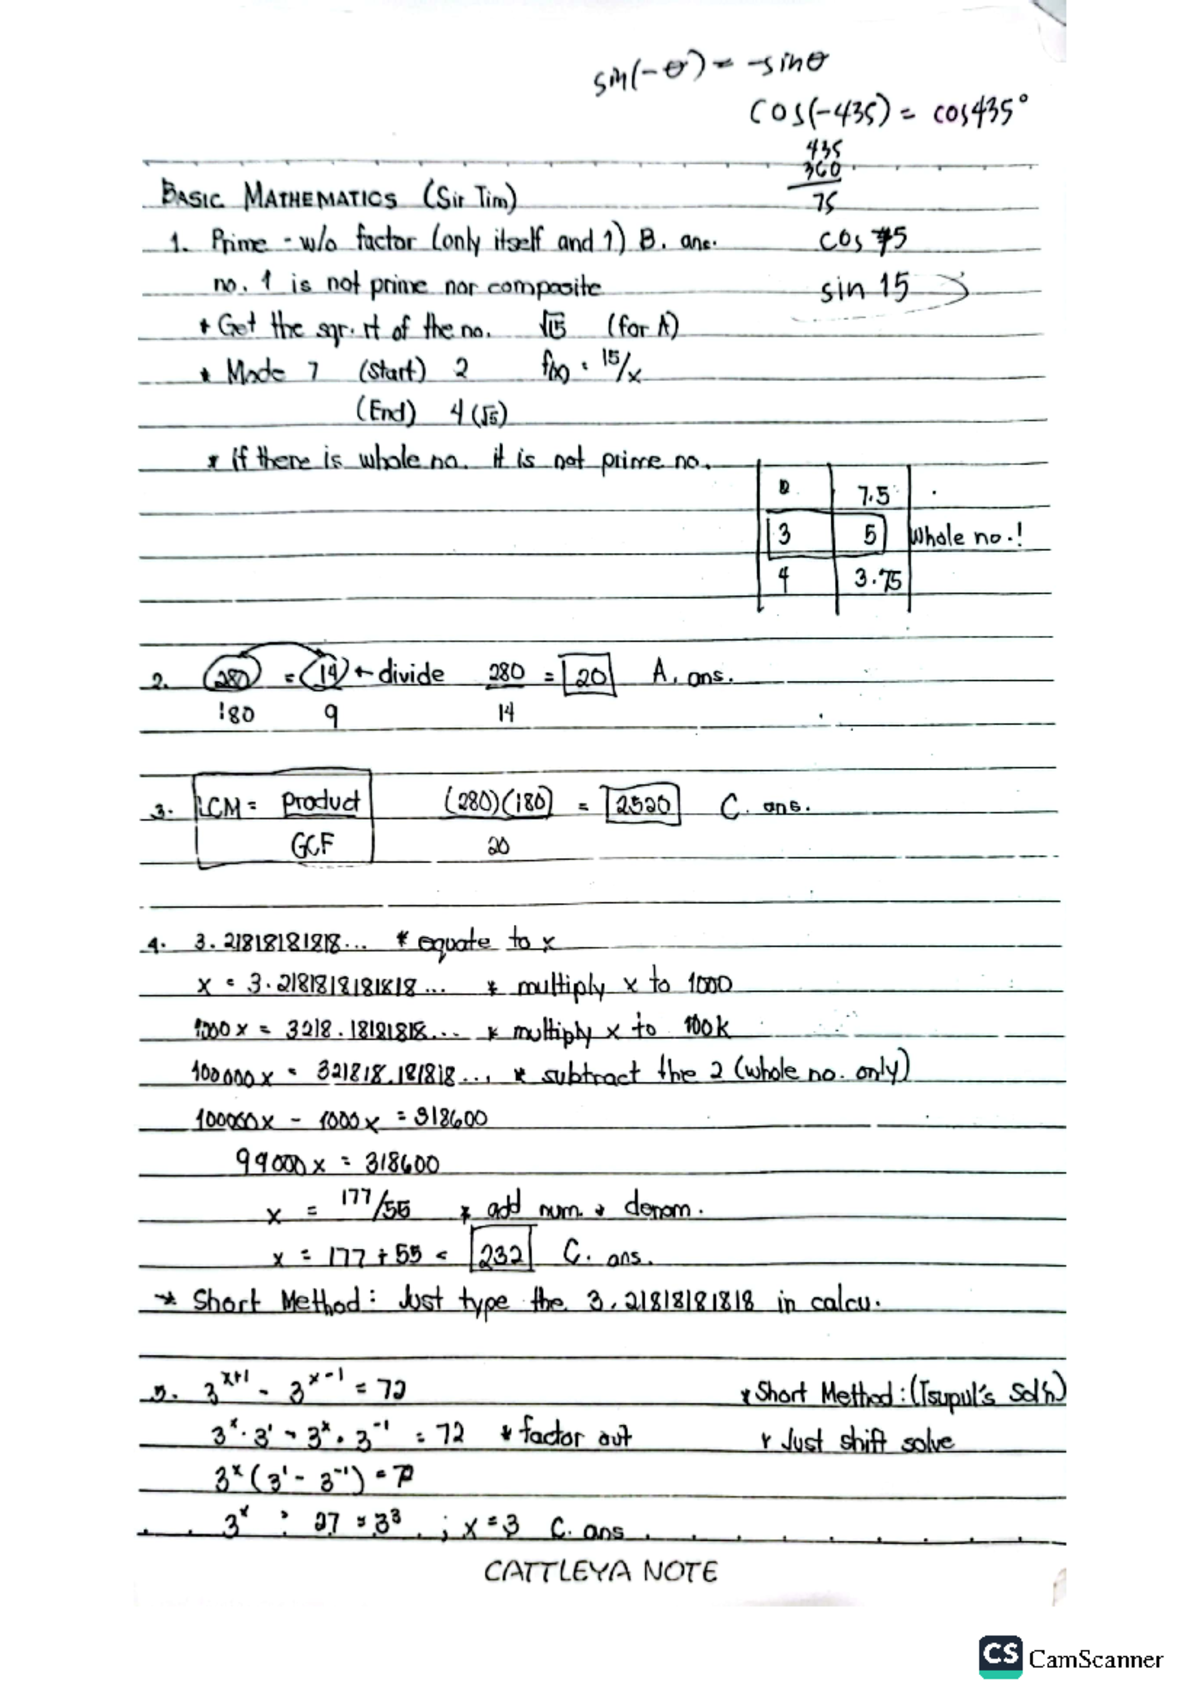 sin(-θ) = -sinθ
cos(-435) = cos435°
435
360
75
cos 75
sin 15
BASIC MATHEMATICS (Sir Tim)
1. Prime - w/o factor (only itself and 1) B. ans.
no. 1 is not prime nor composite
* Get the sqr. rt of the no. √15 (for A)
* Mode 7 (Start) 2 f(x) = 15/x
(End) 4 (√15)
* if there is whole no. it is not prime no.
2 7.5
3 5 Whole no.!
4 3.75
2. 280 = 14 ← divide 280 = 20 A. ans.
180 9 14
3. LCM = Product (280)(180) = 2520 C. ans.
GCF 20
4. 3.21818181818... * equate to x
x = 3.2181818181818... * multiply x to 1000
1000x = 3218.18181818... * multiply x to 100k
100000x = 321818.181818... * subtract the 2 (whole no. only)
100000x - 1000x = 318600
99000x = 318600
x = 177/55 * add num. & denom.
x = 177 + 55 = 232 C. ans.
* Short Method: Just type the 3.21818181818 in calcu.
5. 3^x+1 - 3^x-1 = 72 * Short Method: (Tsupul's Sol'n)
3^x · 3^1 - 3^x · 3^-1 = 72 * factor out * Just shift solve
3^x (3^1 - 3^-1) = 72
3^x = 27 = 3^3 ; x = 3 C. ans
CATTLEYA NOTE
CS CamScanner